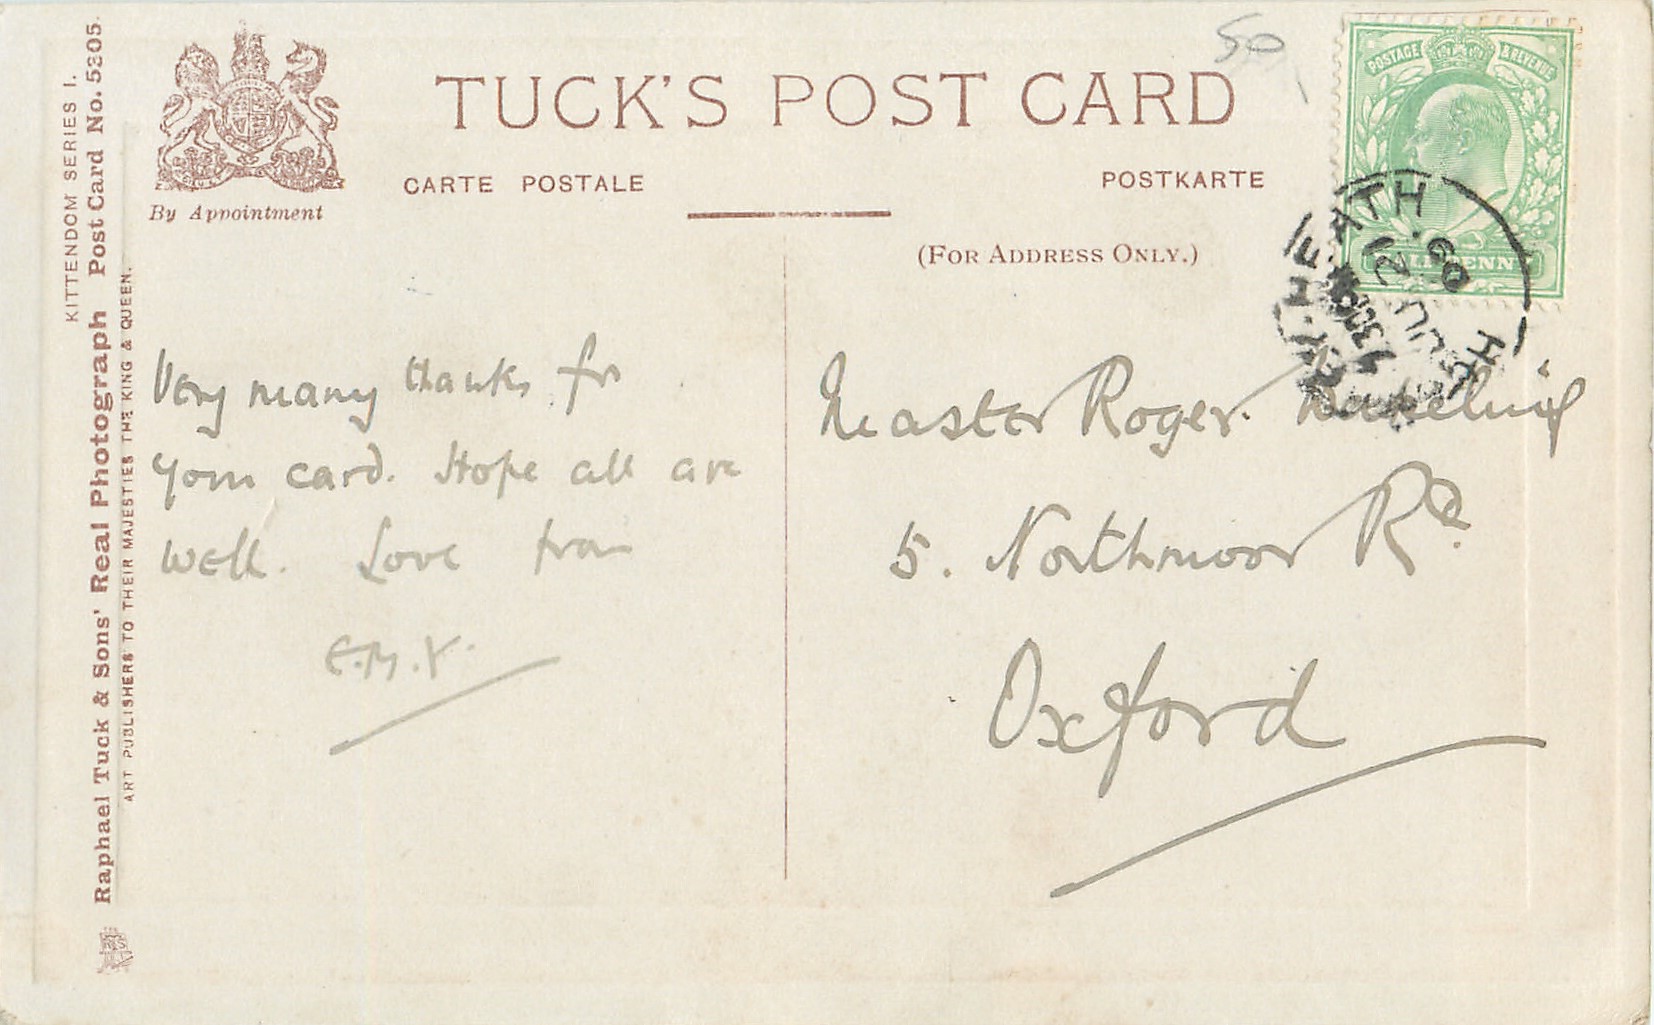 50
TUCK'S POST CARD
CARTE POSTALE
POSTKARTE
By Appointment
(FOR ADDRESS ONLY.)
KITTENDOM SERIES I.
Raphael Tuck & Sons' Real Photograph Post Card No. 5305.
ART PUBLISHERS TO THEIR MAJESTIES THE KING & QUEEN.
POSTAGE & REVENUE
HALFPENNY
HEATH
JU 21
09
Very many thanks for
your card. Hope all are
well. Love from
E.M.Y.
Master Roger
5. Northmoor Rd.
Oxford